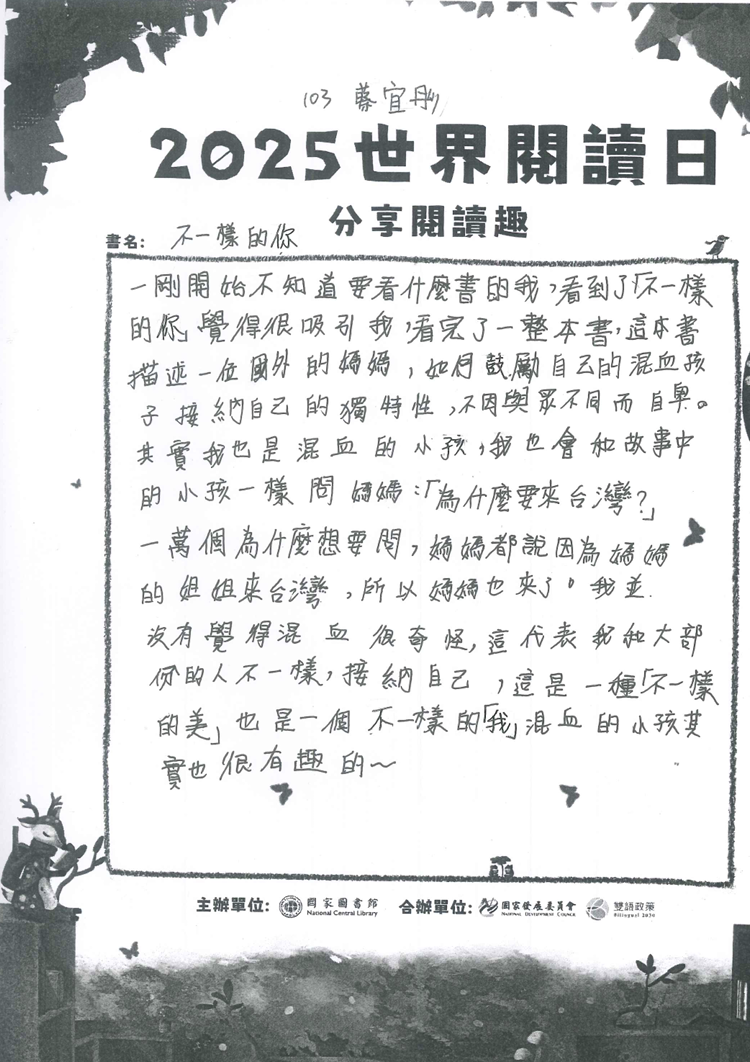 103 蔡宜彤
2025世界閱讀日
分享閱讀趣
書名: 不一樣的你
一剛開始不知道要看什麼書的我,看到了「不一樣
的你」覺得很吸引我,看完了一整本書,這本書
描述一位國外的媽媽,如何鼓勵自己的混血孩
子接納自己的獨特性,不因與眾不同而自卑。
其實我也是混血的小孩,我也會和故事中
的小孩一樣問媽媽:「為什麼要來台灣?」
一萬個為什麼想要問,媽媽都說因為媽媽
的姐姐來台灣,所以媽媽也來了。我並
沒有覺得混血很奇怪,這代表我和大部
份的人不一樣,接納自己,這是一種「不一樣
的美」也是一個不一樣的「我」混血的小孩其
實也很有趣的~
主辦單位: 國家圖書館 合辦單位: 國家發展委員會 雙語政策
National Central Library NATIONAL DEVELOPMENT COUNCIL Bilingual 2030